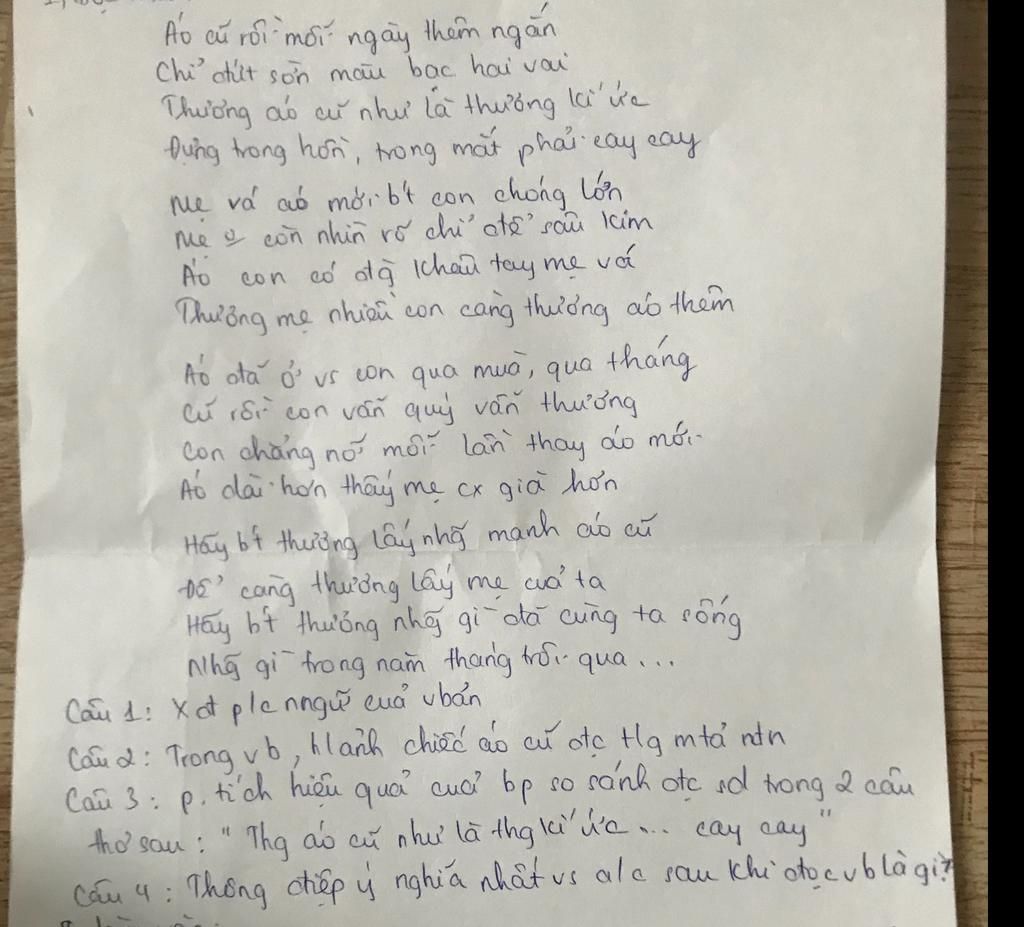 Áo cũ rồi mỗi ngày thêm ngắn
Chỉ đứt sờn màu bạc hai vai
Thương áo cũ như là thương kí ức
Đựng trong hồn, trong mắt phải cay cay
Mẹ vá áo mới bt con chóng lớn
Mẹ k còn nhìn rõ chỉ để sâu kim
Áo con có đg khâu tay mẹ vá
Thương mẹ nhiều con càng thương áo thêm
Áo đã ở vs con qua mùa, qua tháng
Cũ rồi con vẫn quý vẫn thương
Con chẳng nỡ mỗi lần thay áo mới
Áo dài hơn thấy mẹ cx già hơn
Hãy bt thương lấy nhg mảnh áo cũ
Để càng thương lấy mẹ của ta
Hãy bt thương nhg gì đã cùng ta sống
Nhg gì trong năm tháng trôi qua...
Câu 1: Xđ p/c nngữ của vbản
Câu 2: Trong vb, h/ảnh chiếc áo cũ đc t/g mtả ntn
Câu 3: p.tích hiệu quả của bp so sánh đc sd trong 2 câu
thơ sau: "Thg áo cũ như là thg kí ức... cay cay"
Câu 4: Thông điệp ý nghĩa nhất vs a/c sau khi đọc vb là gì?